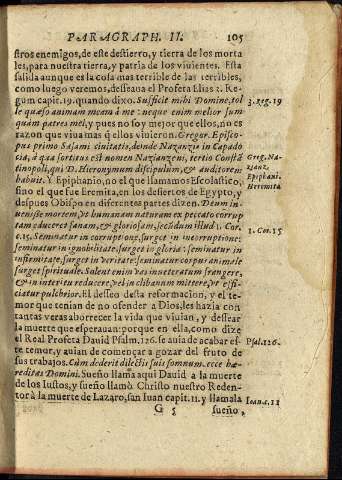 PARAGRAPH. II. 105
stros enemigos, de este destierro, y tierra de los morta
les, para nuestra tierra, y patria de los viuientes. Esta
salida aunque es la cosa mas terrible de las terribles,
como luego veremos, desseaua el Profeta Elias 3. Re-
gum capit. 19. quando dixo. Sufficit mihi Domine, tol
le quæso animam meam à me: neque enim melior sum
quàm patres mei, y pues no soy mejor que ellos, no es
razon que viua mas q̃ ellos viuieron. Gregor. Episco-
pus primo Sasami ciuitatis, deinde Nazanzi in Capado
cia, à qua fortitus est nomen Nazianzeni, tertio Constã
tinopoli, qui D. Hieronymum discipulum, & auditorem
habuit. Y Epiphanio, no el que llamamos Escolastico,
sino el que fue Eremita, en los desiertos de Egypto, y
despues Obispo en diferentes partes dizen. Deum in-
uenisse mortem, vt humanam naturam ex peccato corrup
tam educeret sanam, & gloriosam, secũdum illud 1. Cor.
c. 15. Seminatur in corruptione, surget in incorruptione:
seminatur in ignobilitate, surget in gloria: seminatur in
infirmitate, surget in veritate: seminatur corpus animale
surget spirituale. Solent enim vas inueteratum frangere,
& in interitu reducere, vel in clibanum mittere, vt effi-
ciatur pulchrior. El desseo desta reformacion, y el te-
mor que tenian de no ofender à Dios, les hazia con
tantas veras aborrecer la vida que viuian, y dessear
la muerte que esperauan: porque en ella, como dize
el Real Profeta Dauid Psalm. 126. se auia de acabar es-
te temor, y auian de començar a gozar del fruto de
sus trabajos. Cùm dederit dilectis suis somnum. ecce hæ-
reditas Domini. Sueño llama aqui Dauid a la muerte
de los Iustos, y sueño llamò Christo nuestro Reden-
tor à la muerte de Lazaro, san Iuan capit. 11. y llamala
G 5 sueño,
3. reg. 19
Greg. Na-
zianz.
Epiphani.
Heremita
1. Cor. 15
Psal. 126.
Ioana. 11